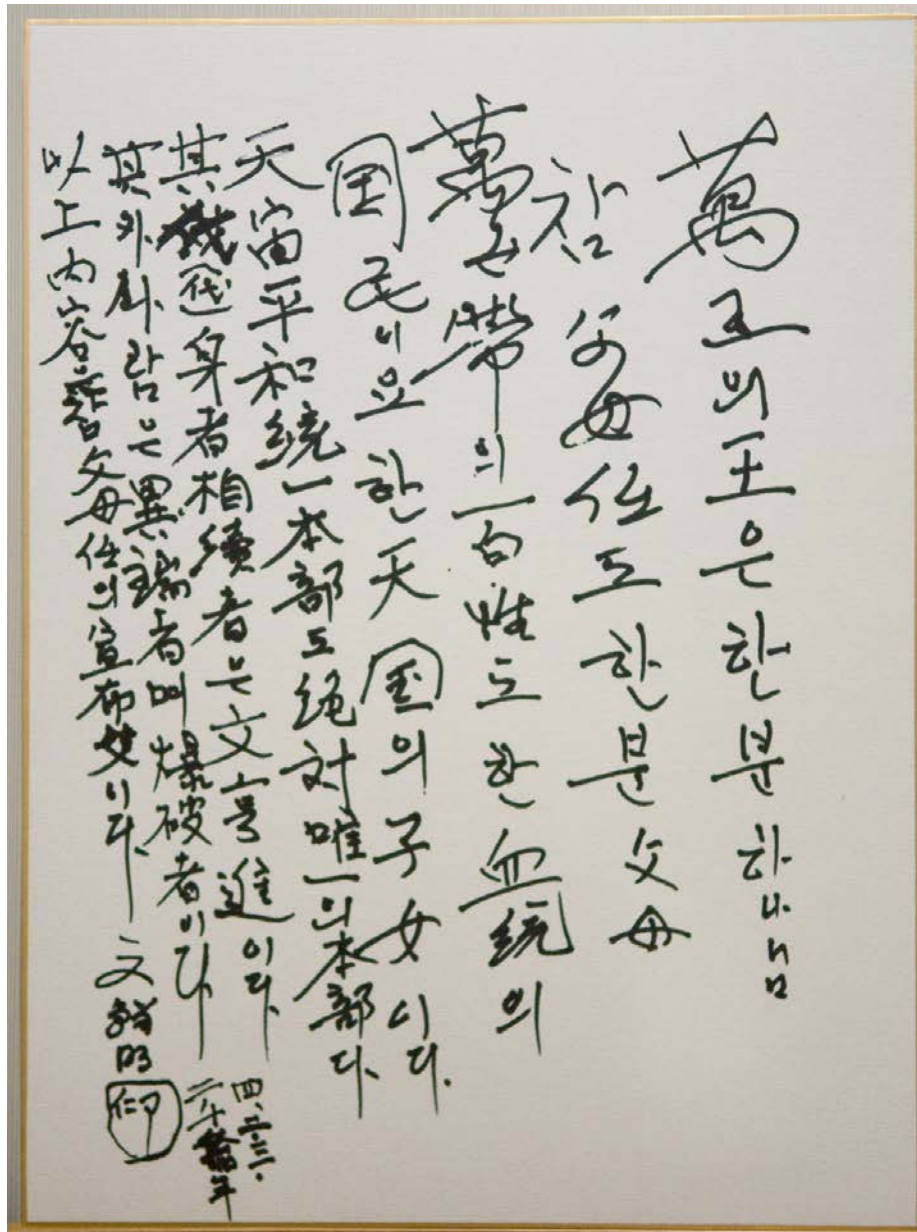 萬王의王은한분하나님
참父母任도한분父母
萬世帶의一白性도한血統의
国民이요한天国의子女이다.
天宙平和統一本部도絕対唯一의本部다.
其代身者相續者는文亨進이다.
其外사람은異端者며爆破者이다
以上内容은참父母任의宣布文이다. 文鮮明
印
四.二.三.
二千拾年